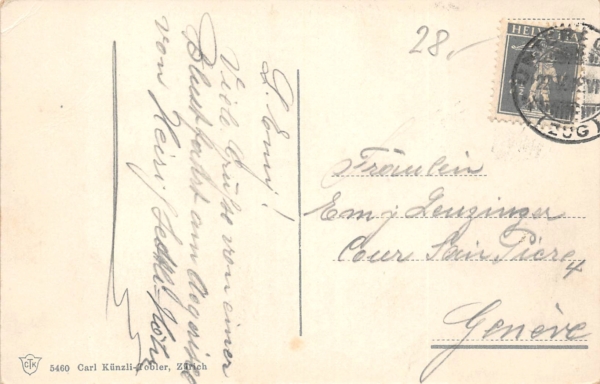 28.-
HELVETIA
UNTERÄG
(ZUG)
L. Emy!
Viele Grüsse von einer
Blustfahrt am Aegerisee
von Heiri
Fräulein
Emj Leuzinger
Cour Sain Piere
4
Genève
CTK
5460 Carl Künzli-Tobler, Zürich